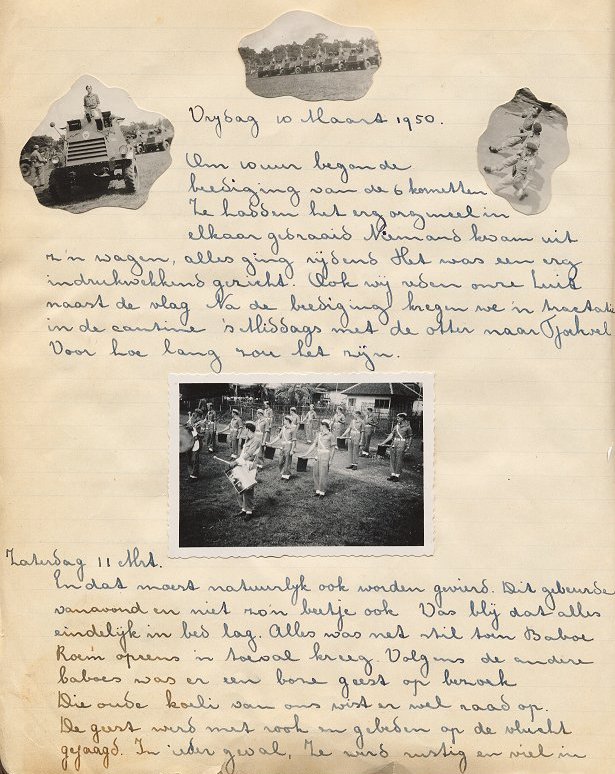 Vrijdag 10 Maart 1950.
Om 10 uur begon de
beediging van de 6 kornetten
Ze hadden het erg origineel in
elkaar gedraaid Niemand kwam uit
z'n wagen, alles ging rijdend Het was een erg
indrukwekkend gezicht. Ook wij reden onze Luit
naast de vlag Na de beediging kregen we 'n tractatie
in de cantine 's Middags met de otter naar
Voor hoe lang zou het zijn.
Zaterdag 11 Mrt.
En dat moest natuurlijk ook worden gevierd. Dit gebeurde
vanavond en niet zo'n beetje ook Was blij dat alles
eindelijk in bed lag. Alles was net stil toen Baboe
Roem opeens 'n toeval kreeg. Volgens de andere
baboes was er een boze geest op bezoek
Die oude koeli van ons wist er wel raad op.
De geest werd met rook en gebeden op de vlucht
gejaagd. In ieder geval, Ze werd rustig en viel in